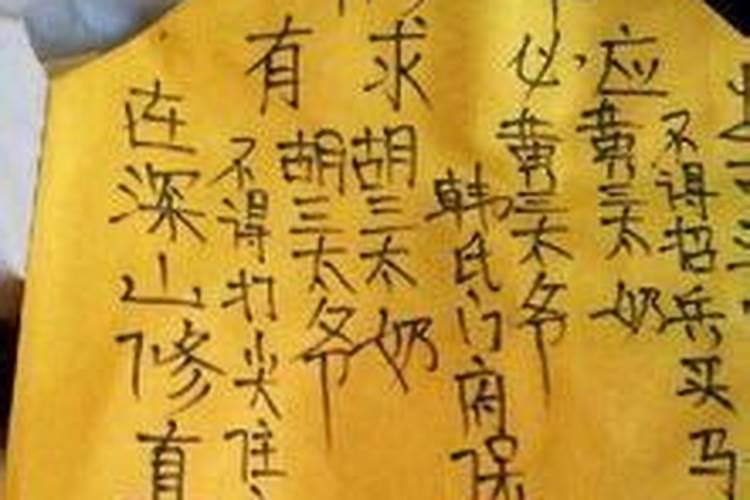 有求必应
连深山修真
不得打尖住
胡三太爷
胡三太奶
韩氏门府保
黄三太爷
黄三太奶
不得招兵买马